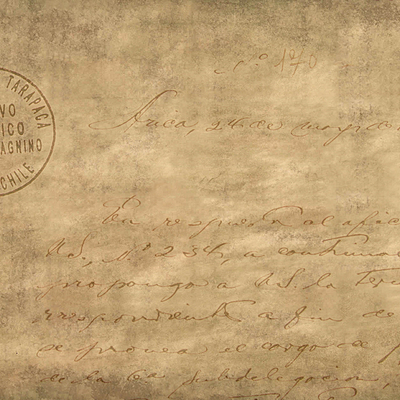 Nº 170
TARAPACA
VO
ICO
AGNINO
CHILE
Arica, 26 de mayo de
En respuesta al ofic
Ud., Nº 234, a continua
propongo a U.S. la ter
rrespondiente a fin de
se provea el cargo de
de la 6a subdelegacion,